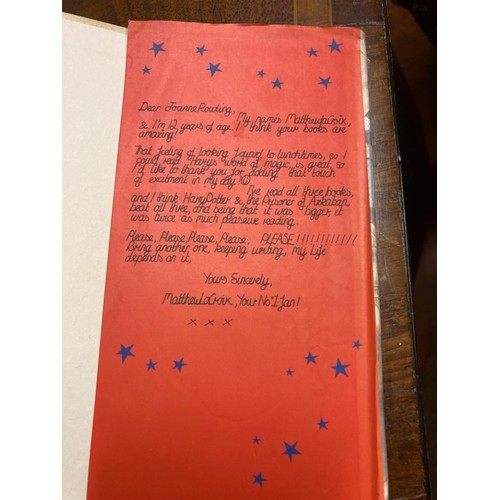 Dear Joanne Rowling,
My name's Matthew LaCroix,
& I'm 12 years of age. I think your books are
amazing!
That feeling of looking foward to lunchtimes, so I
could read Harry's world of magic is great, so
I'd like to thank you for adding that touch
of excitment in my day
I've read all three books,
and I think Harry Potter & the Prisoner of Azkaban
beat all three, and being that it was bigger it
was twice as much pleasure reading.
Please, Please Please, Please, PLEASE!!!!!!!!!!!!
bring another one, keeping writing, my life
depends on it,
Yours Sincerely,
Matthew LaCroix, Your No.1 fan!
x x x